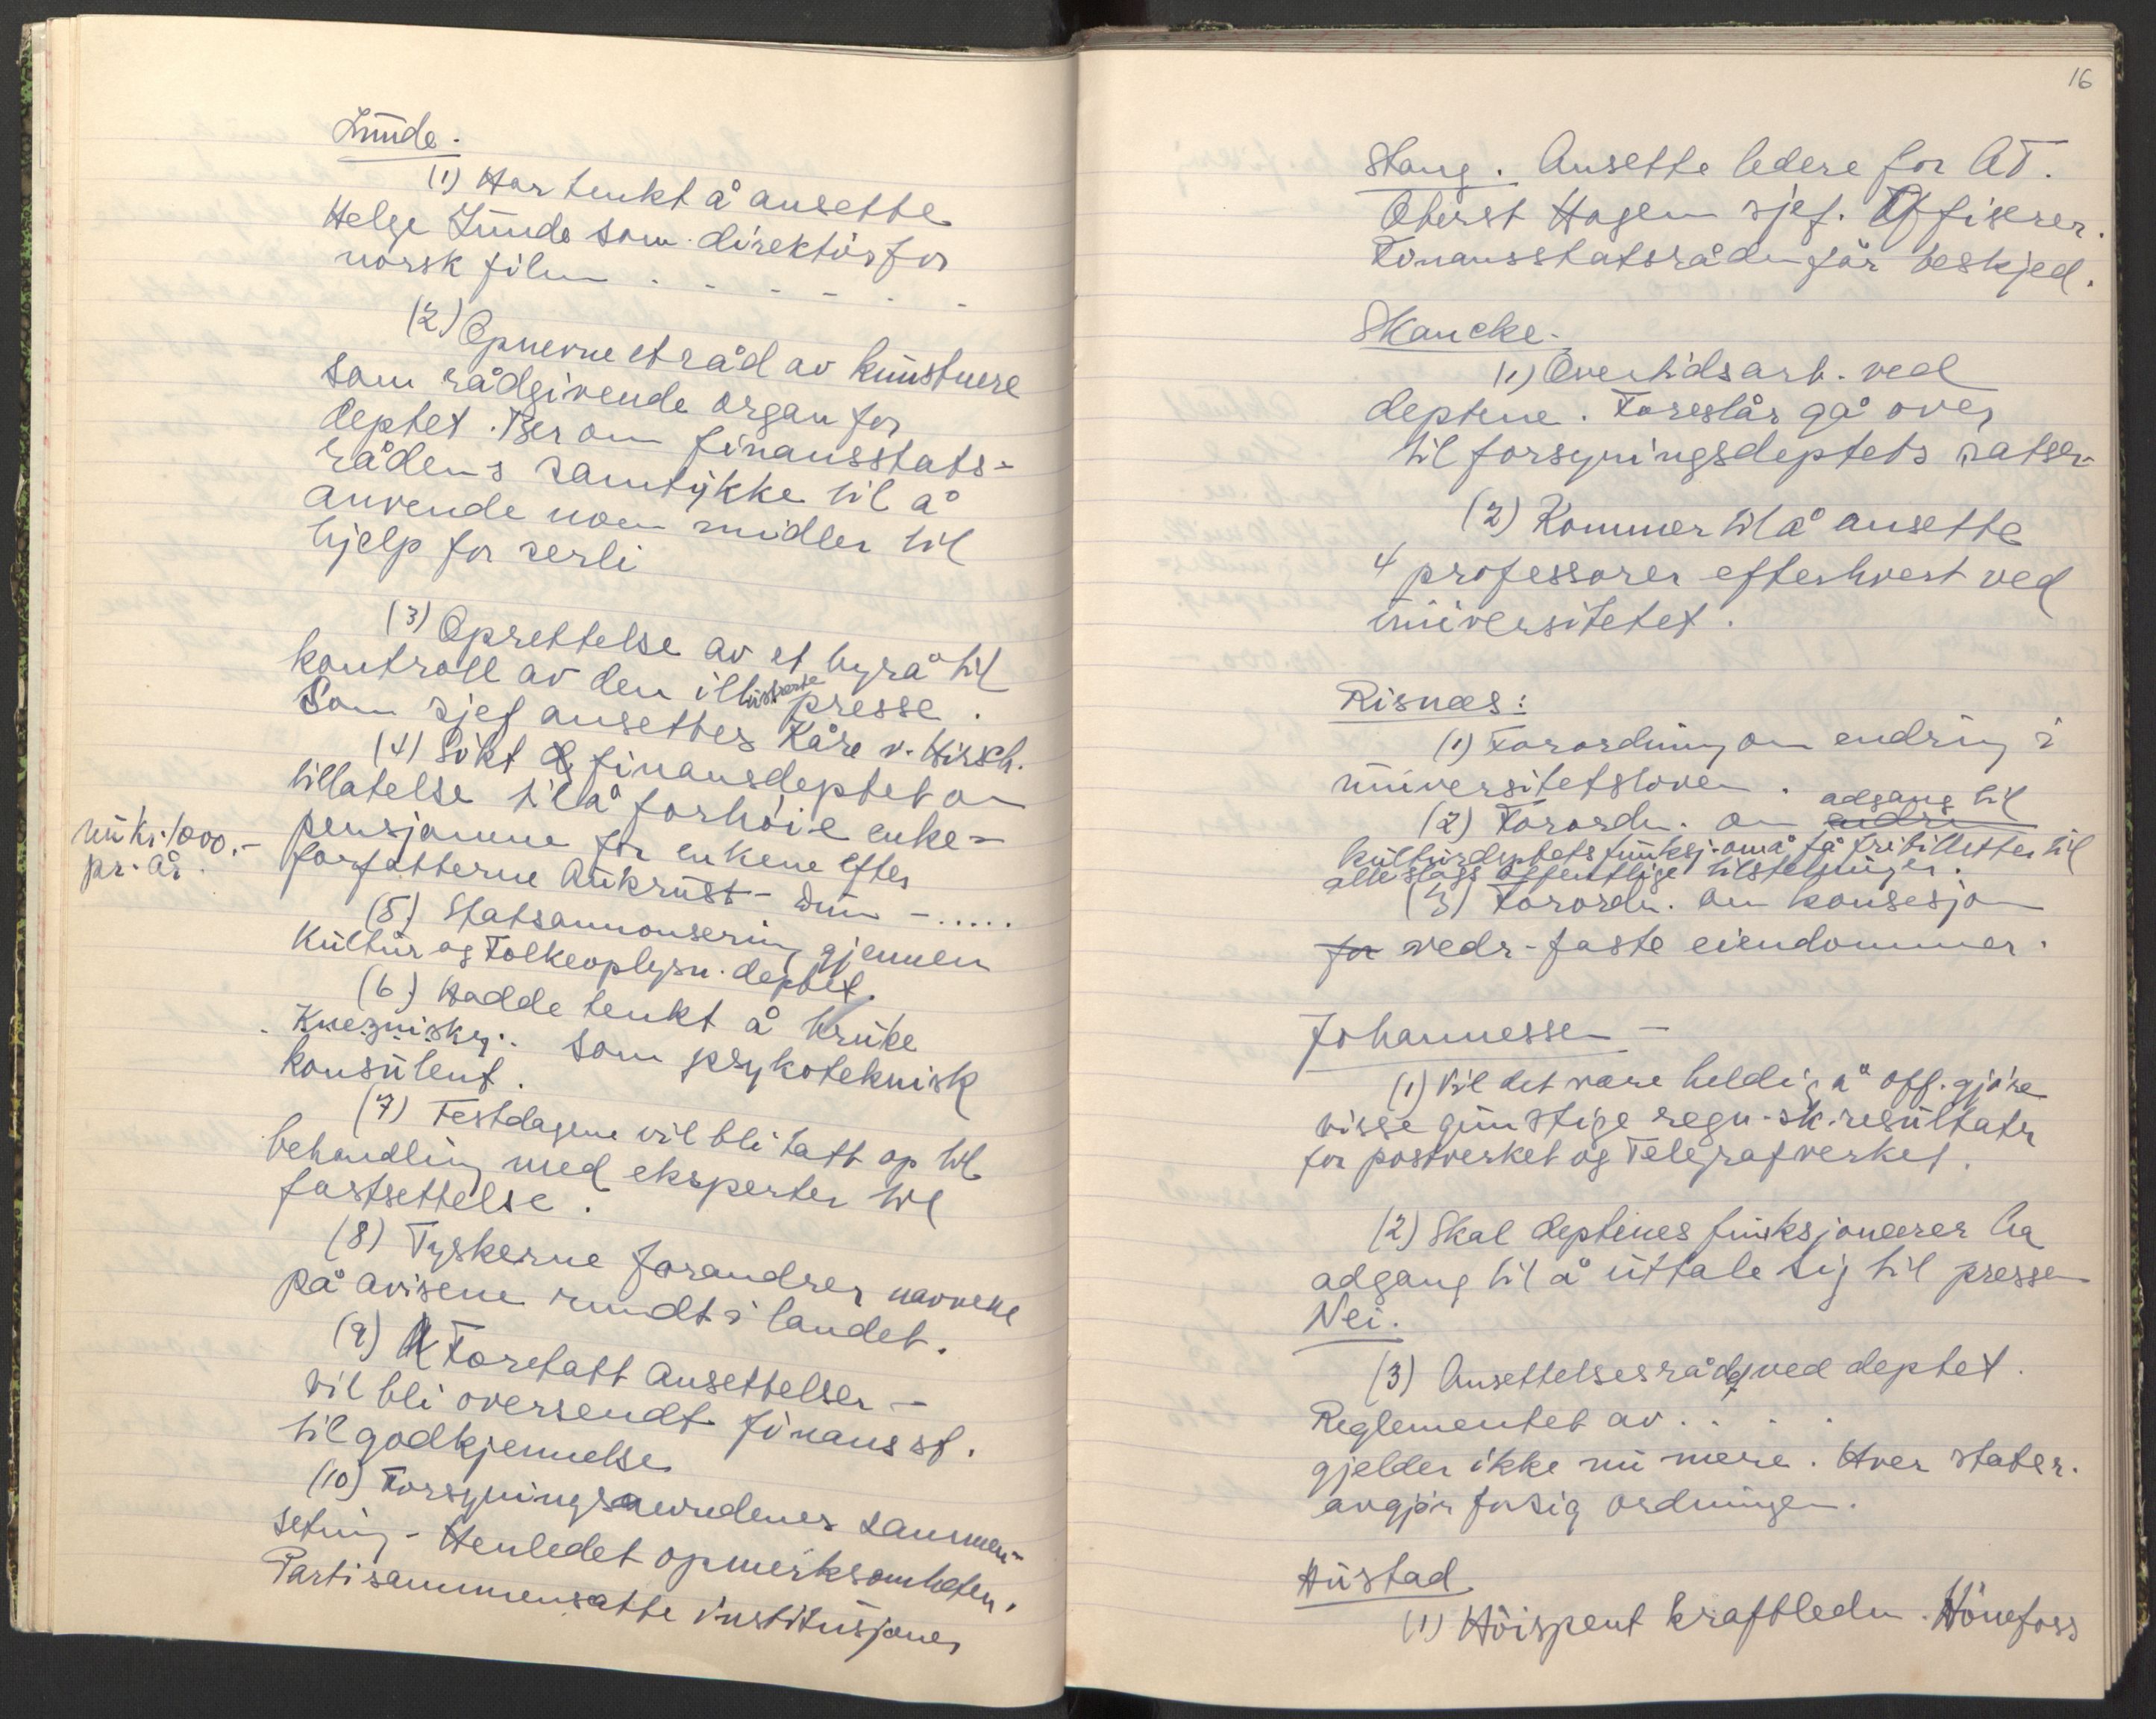 Lunde.
(1) Har tenkt å ansette
Helge Lunde som direktör for
norsk film . - - - . -
(2) Opnevne et råd av kunstnere
som rådgivende organ for
deptet. Ber om finansstats-
rådens samtykke til å
anvende noen midler til
hjelp for serli
(3) Oprettelse av et byrå til
kontroll av den illustrerte presse.
Som sjef ansettes Kåre v. Hirsch.
(4) Sökt finansdeptet om
tillatelse til å forhöie enke-
nu kr. 1000.-
pr. år.
pensjonene for enkene efter
forfatterne Aukrust - Dun - .....
(5) Statsannonsering gjennem
Kultur og Folkeoplysn. deptet
(6) Hadde tenkt å bruke
som psykoteknisk
konsulent.
(7) Festdagene vil bli tatt op til
behandling med eksperter til
fastsettelse.
(8) Tyskerne forandrer navnene
på avisene rundt i landet.
(9) Foretatt Ansettelser -
vil bli oversendt finansst.
til godkjennelse
(10) Forsyningsnevndenes sammen-
setning - Henledet opmerksomheten.
Partisammensatte institusjoner
16
Stang. Ansette ledere for AT.
Oberst Hagen sjef. Offiserer.
Finansstatsråden får beskjed.
Skancke -
(1) Overtidsarb. ved
deptene. Foreslår gå over
til forsyningsdeptets satser
(2) Kommer til å ansette
4 professorer efterhvert ved
universitetet.
Risnæs:
(1) Forordning om endring i
universitetsloven.
adgang til
(2) Forordn. om endrin
kulturdeptets funksj. om å få fribilletter til
alle slags offentlige tilstelninger.
(3) Forordn. om konsesjon
for vedr. faste eiendommer.
Johannessen -
(1) Vil det være heldig å off. gjöre
visse gunstige regn.sk. resultater
for postverket og Telegrafverket.
(2) Skal deptenes funksjonærer ha
adgang til å uttale sig til pressen
Nei.
(3) Ansettelsesråd ved deptet.
Reglementet av . . . .
gjelder ikke nu mere. Hver statsr.
avgjör for sig ordningen.
Hustad
(1) Höispent kraftledn. Hönefoss